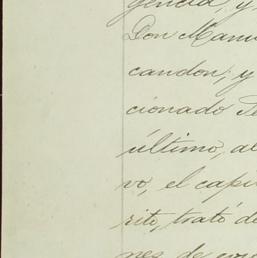 gencia, y
Don Manu
candon, y
cionado Te
último, al
vo, el capi
rito, trató de
nes de